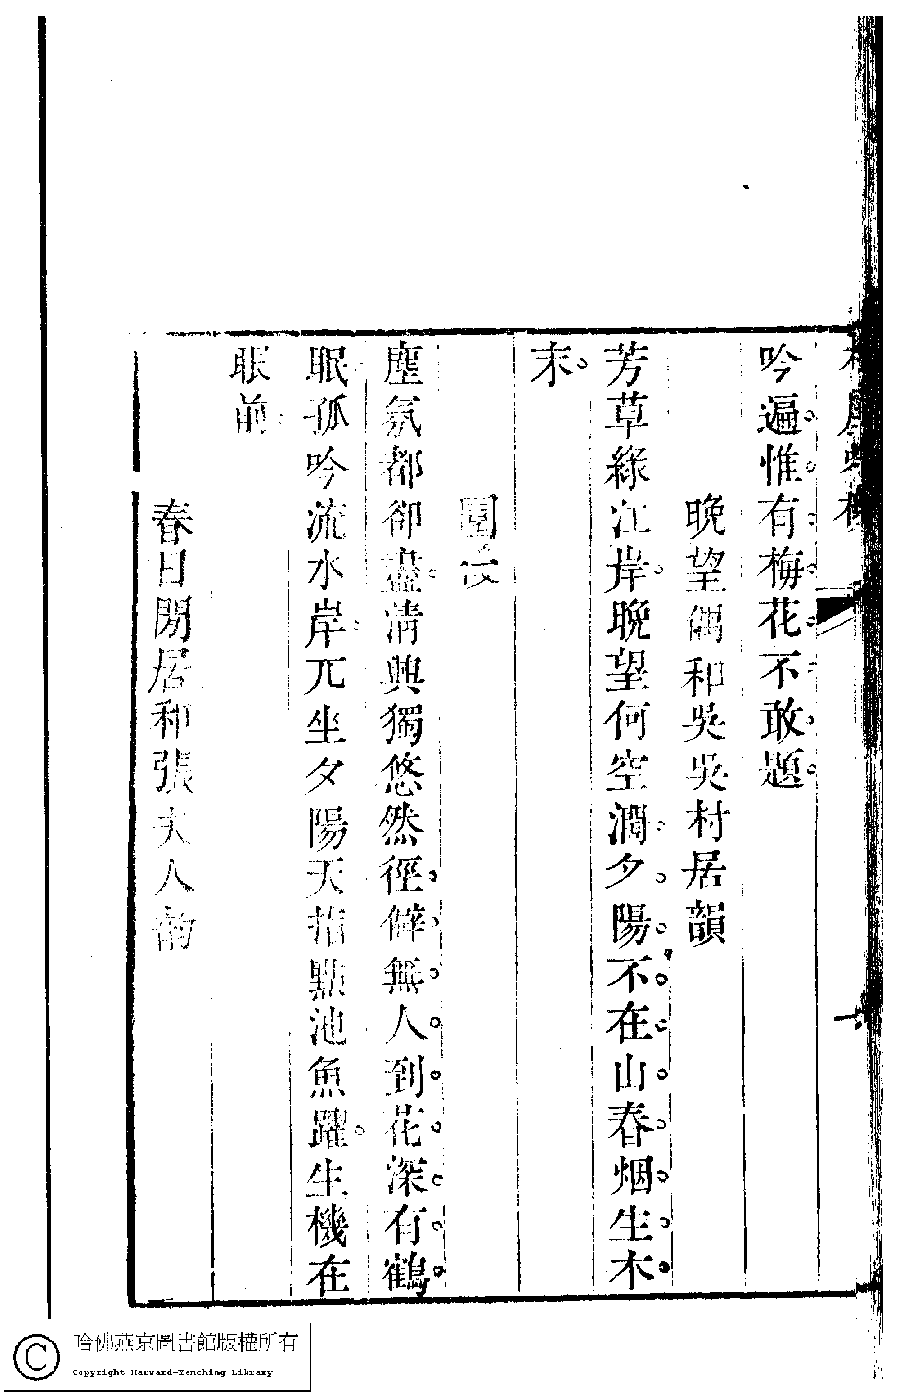 吟遍惟有梅花不敢題
晚望偶和吳吳村居韻
芳草綠江岸晚望何空濶夕陽不在山春烟生木
末
園
塵氛都卻盡清興獨悠然徑僻無人到花深有鶴
眠孤吟流水岸兀坐夕陽天指點池魚躍生機在
眼前
春日閒居和張夫人韵
哈佛燕京圖書館版權所有
Copyright Harvard-Yenching Library